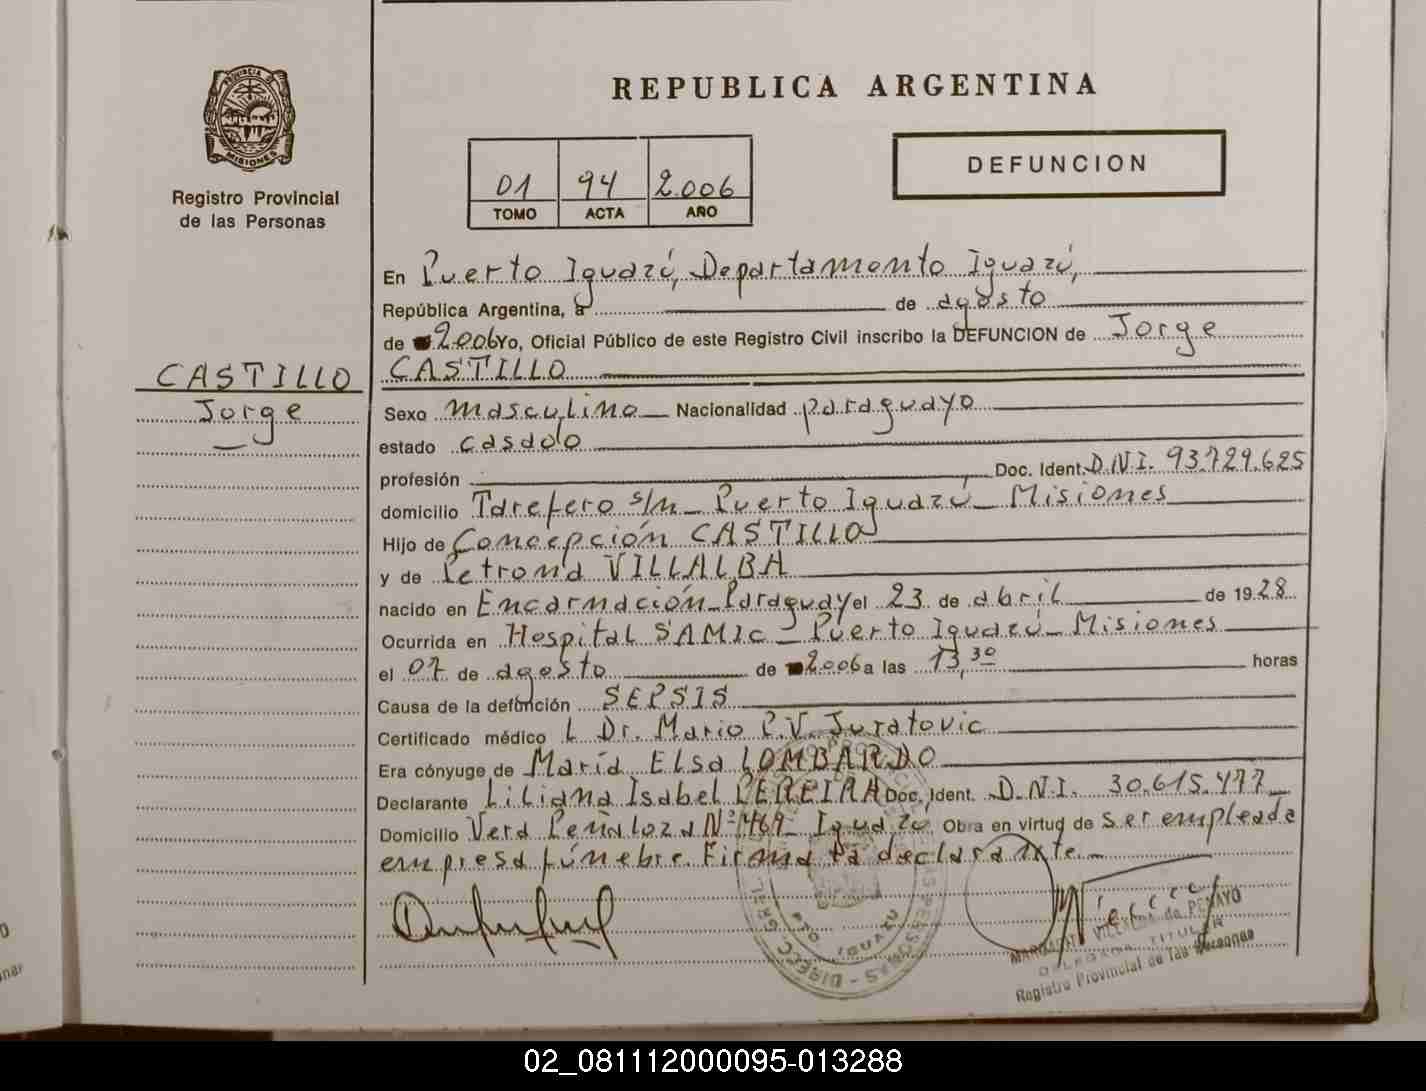 REPUBLICA ARGENTINA
PROVINCIA DE MISIONES
Registro Provincial
de las Personas
01 94 2.006
TOMO ACTA AÑO
DEFUNCION
En Puerto Iguazú, Departamento Iguazú,
República Argentina, a de agosto
de 2.006 Yo, Oficial Público de este Registro Civil inscribo la DEFUNCION de Jorge
CASTILLO
CASTILLO
Jorge
Sexo masculino Nacionalidad paraguayo
estado casado
profesión Doc. Ident. D.N.I. 93.729.625
domicilio Tarefero s/n - Puerto Iguazú - Misiones
Hijo de Concepción CASTILLO
y de Petrona VILLALBA
nacido en Encarnación - Paraguay el 23 de abril de 1928
Ocurrida en Hospital SAMIC - Puerto Iguazú - Misiones
el 07 de agosto de 2006 a las 13,30 horas
Causa de la defunción SEPSIS
Certificado médico Dr. Mario P.V. Juratovic
Era cónyuge de María Elsa LOMBARDO
Declarante Liliana Isabel PEREIRA Doc. Ident. D.N.I. 30.615.477
Domicilio Vera Peñaloza N° 1469 - Iguazú Obra en virtud de ser empleada
empresa fúnebre. Firma la declarante.-
DELEGADA TITULAR
Registro Provincial de las Personas
02_081112000095-013288